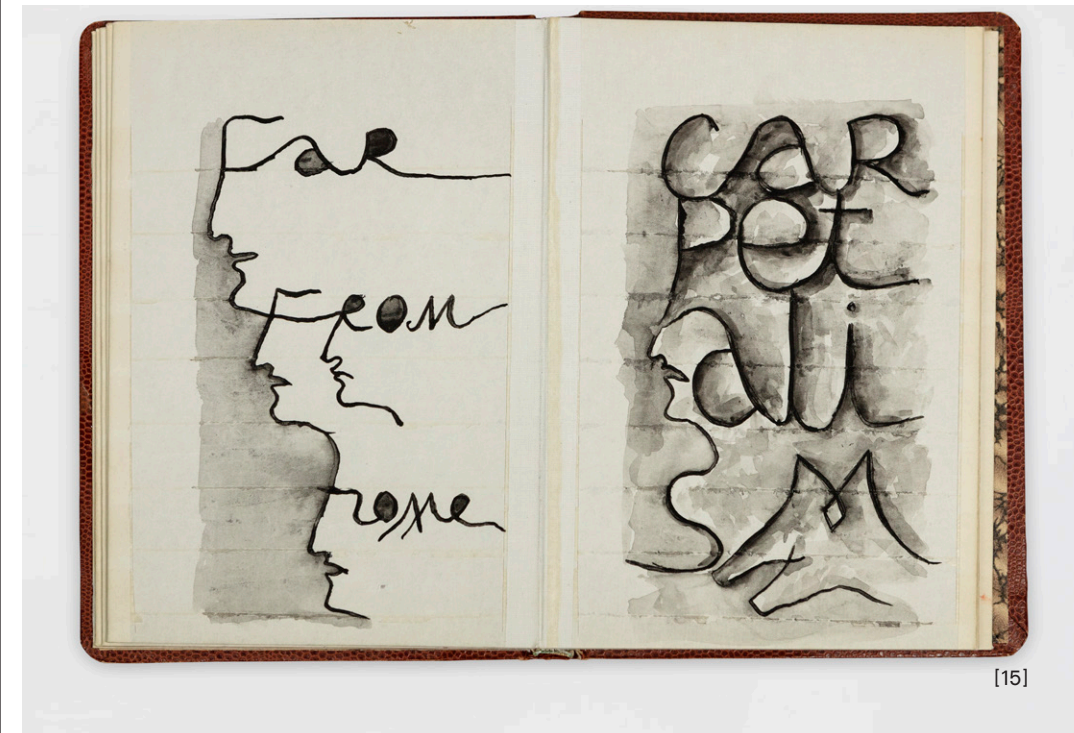 FAR
FROM
Home
CAR
Pet
ali
SM
[15]